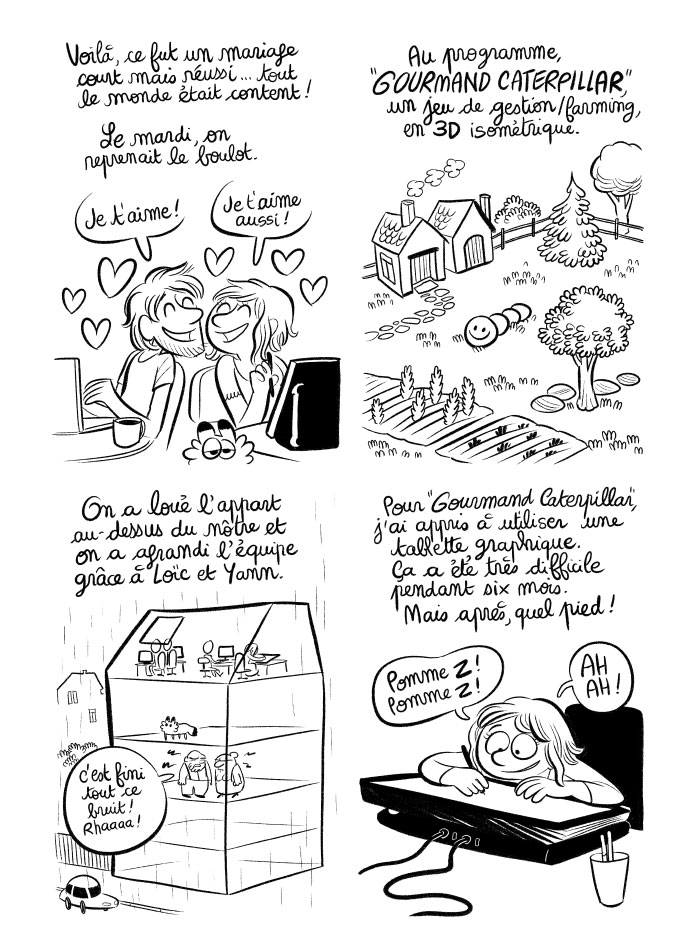 Voilà, ce fut un mariage
court mais réussi... tout
le monde était content!
Le mardi, on
reprenait le boulot.
Je t'aime!
Je t'aime
aussi!
Au programme,
"GOURMAND CATERPILLAR",
un jeu de gestion/farming,
en 3D isométrique.
On a loué l'appart
au-dessus du nôtre et
on a agrandi l'équipe
grâce à Loïc et Yann.
C'est fini
tout ce
bruit!
Rhaaaa!
Pour "Gourmand Caterpillar",
j'ai appris à utiliser une
tablette graphique.
Ça a été très difficile
pendant six mois.
Mais après, quel pied!
Pomme Z!
Pomme Z!
AH
AH!